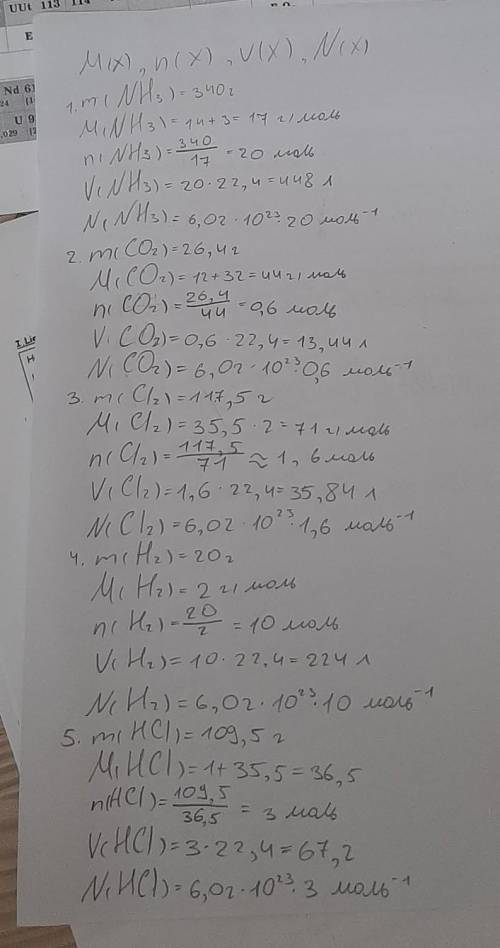 UUt 113 114
E
Nd 6
U 9
M(x), n(x), V(x), N(x)
1. m(NH₃)=340г
M(NH₃)=14+3=17 г/моль
n(NH₃)=340/17=20 моль
V(NH₃)=20·22,4=448 л
N(NH₃)=6,02·10²³·20 моль⁻¹
2. m(CO₂)=26,4г
M(CO₂)=12+32=44г/моль
n(CO₂)=26,4/44=0,6 моль
V(CO₂)=0,6·22,4=13,44л
N(CO₂)=6,02·10²³·0,6 моль⁻¹
3. m(Cl₂)=117,5г
M(Cl₂)=35,5·2=71г/моль
n(Cl₂)=117,5/71≈1,6моль
V(Cl₂)=1,6·22,4=35,84л
N(Cl₂)=6,02·10²³·1,6 моль⁻¹
4. m(H₂)=20г
M(H₂)=2 г/моль
n(H₂)=20/2=10моль
V(H₂)=10·22,4=224л
N(H₂)=6,02·10²³·10 моль⁻¹
5. m(HCl)=109,5г
M(HCl)=1+35,5=36,5
n(HCl)=109,5/36,5=3моль
V(HCl)=3·22,4=67,2
N(HCl)=6,02·10²³·3 моль⁻¹